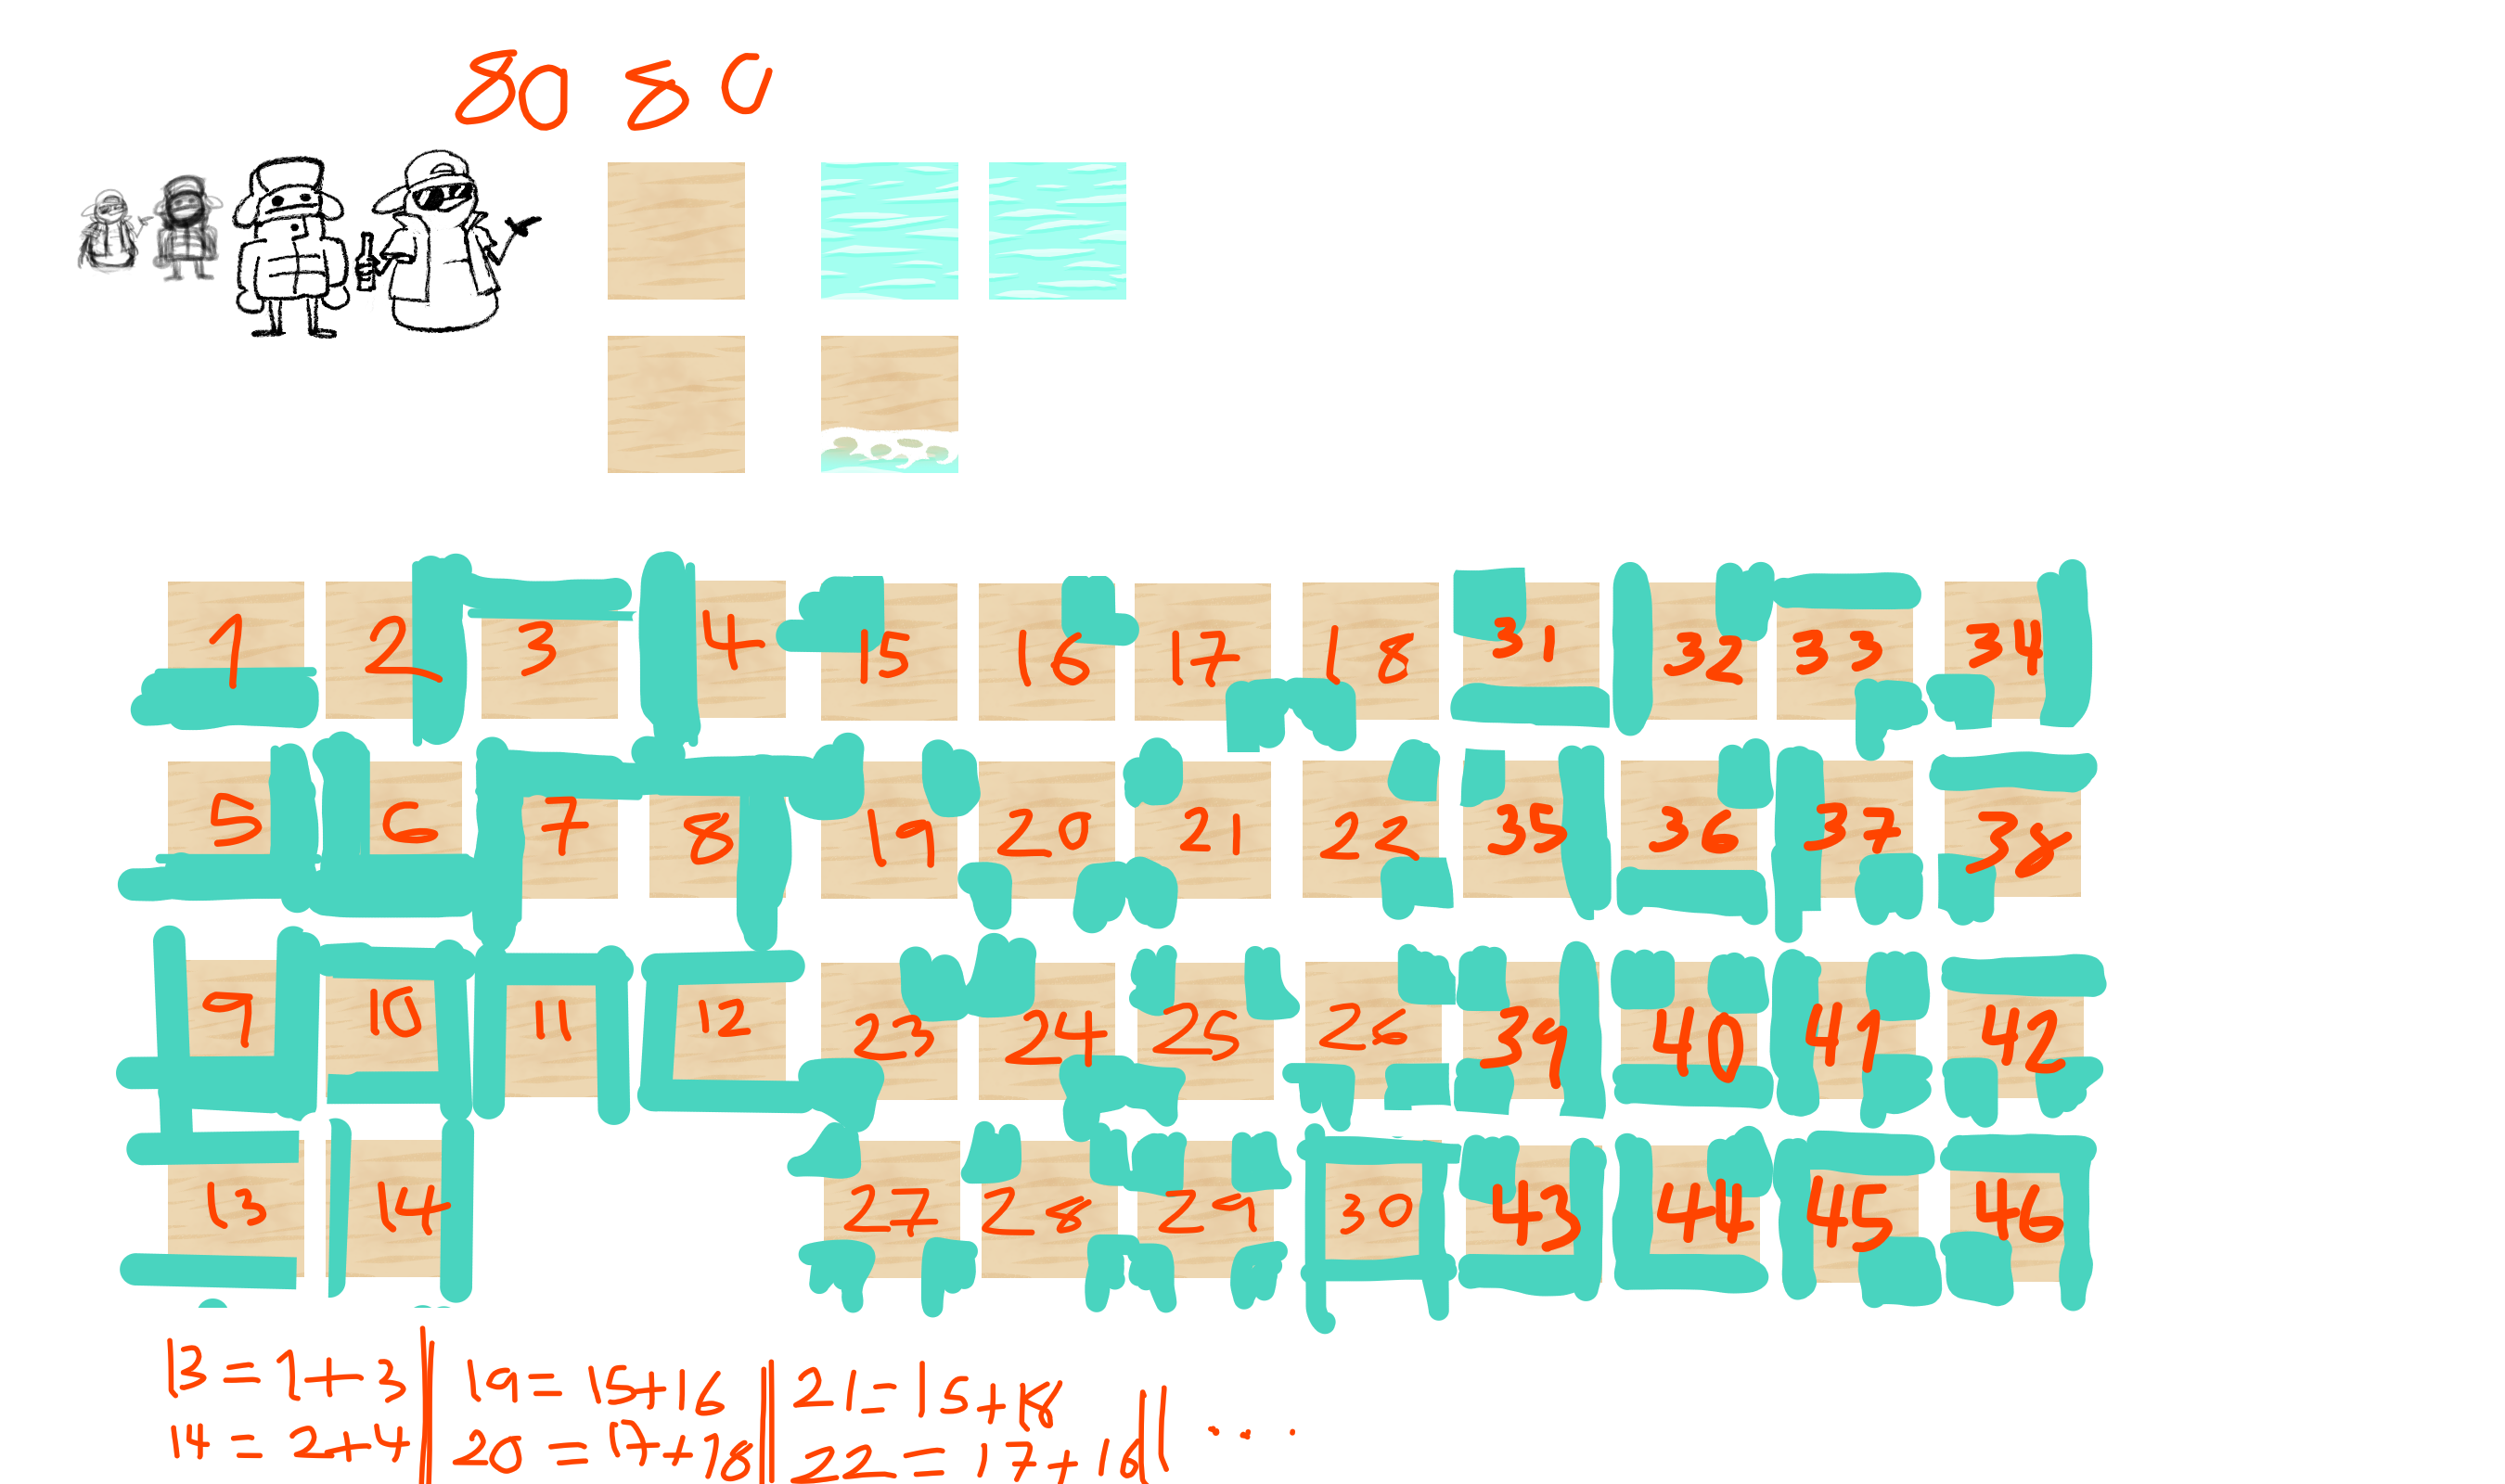 80 80
1 2 3 4 15 16 17 18 31 32 33 34
5 6 7 8 19 20 21 22 35 36 37 38
9 10 11 12 23 24 25 26 39 40 41 42
13 14 27 28 29 30 43 44 45 46
13=1+3 || 19=15+16 || 21=15+18 || ...
14=2+4 || 20=17+18 || 22=17+16 ||